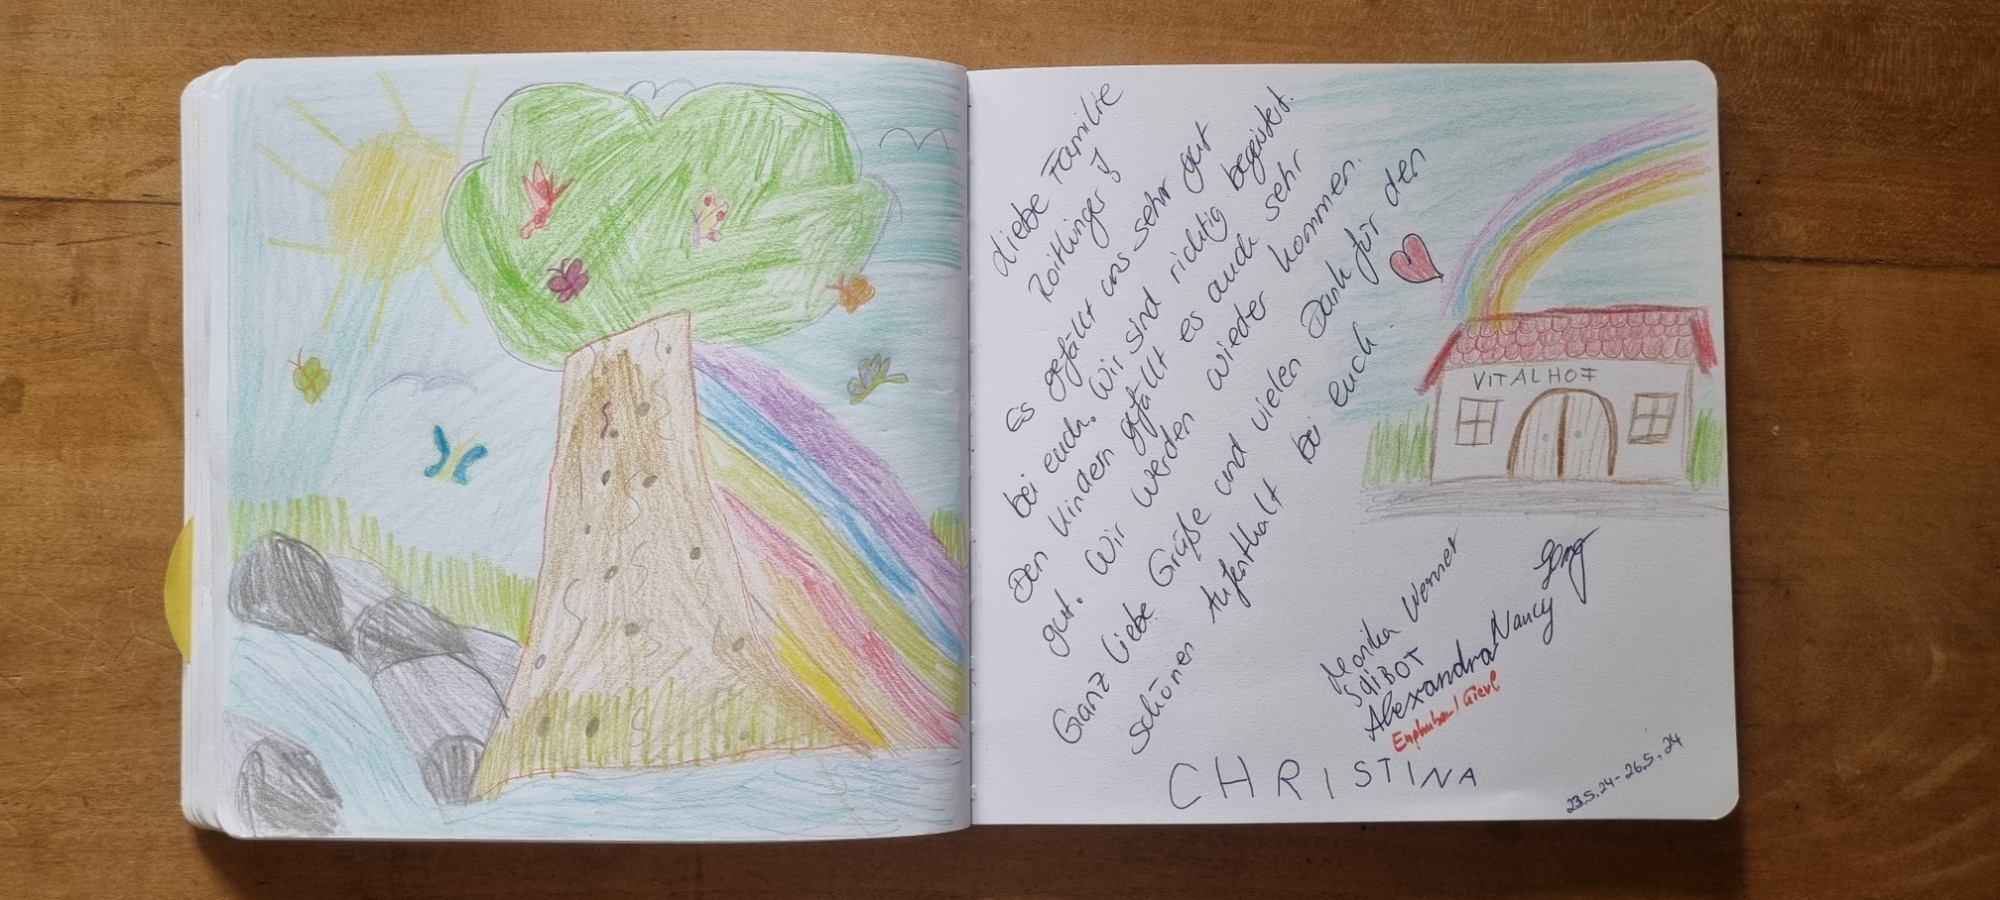 Liebe Familie
Roithinger!
Es gefällt uns sehr gut
bei euch. Wir sind richtig begeistert.
Den Kindern gefällt es auch sehr
gut. Wir werden wieder kommen.
Ganz liebe Grüße und vielen Dank für den
schönen Aufenthalt bei euch.
VITALHOF
Monika Werner
SAIBOT
Alexandra Nancy
CHRISTINA
23.5.24-26.5.24